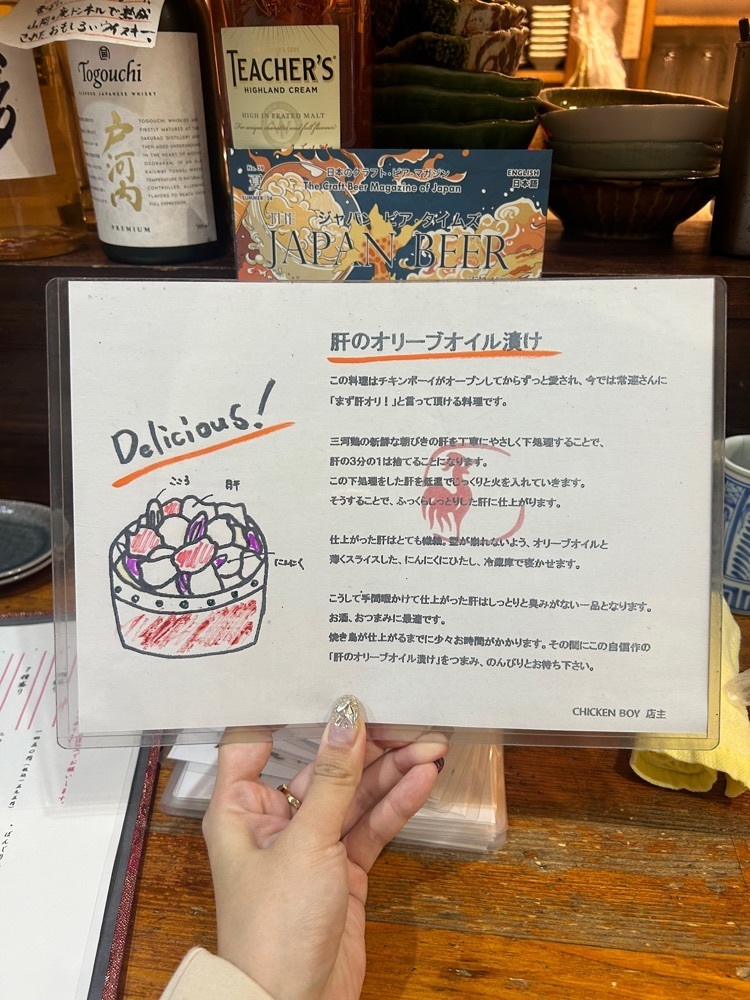 山岡の廃トンネルで熟成
されたおもしろいウイスキー。
Togouchi
BLENDED JAPANESE WHISKY
戸河内
TOGOUCHI WHISKIES ARE
FIRSTLY MATURED AT THE
PREMIUM
TEACHER'S
HIGHLAND CREAM
HIGH IN PEATED MALT
For unique character and full flavour
夏
SUMMER
日本のクラフト・ビア・マガジン
The Craft Beer Magazine of Japan
ENGLISH
日本語
THE
ジャパン・ビア・タイムズ
JAPAN BEER
肝のオリーブオイル漬け
この料理はチキンボーイがオープンしてからずっと愛され、今では常連さんに
「まず肝オリ！」と言って頂ける料理です。
三河鶏の新鮮な朝びきの肝を丁寧にやさしく下処理することで、
肝の3分の1は捨てることになります。
この下処理をした肝を低温でじっくりと火を入れていきます。
そうすることで、ふっくらしっとりした肝に仕上がります。
仕上がった肝はとても繊細。型が崩れないよう、オリーブオイルと
薄くスライスした、にんにくにひたし、冷蔵庫で寝かせます。
こうして手間暇かけて仕上がった肝はしっとりと臭みがない一品となります。
お酒、おつまみに最適です。
焼き鳥が仕上がるまでに少々お時間がかかります。その間にこの自信作の
「肝のオリーブオイル漬け」をつまみ、のんびりとお待ち下さい。
CHICKEN BOY 店主
Delicious!
こころ
肝
にんにく